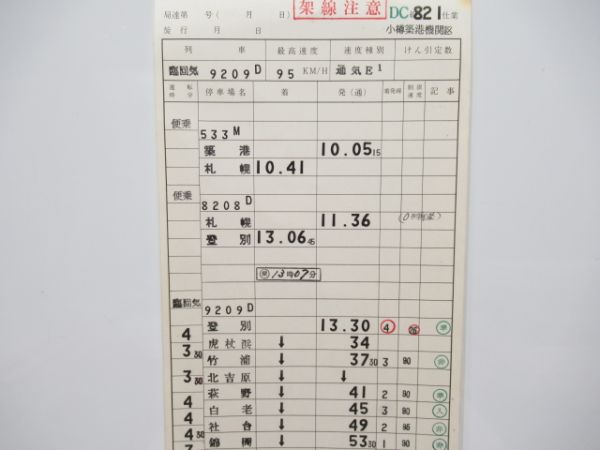 局達第 号( 月 日) 架線注意 DC 821仕業
施行 月 日 小樽築港機関区
列車 最高速度 速度種別 けん引定数
臨回気 9209D 95 KM/H 通気E1
運転時分 停車場名 着 発(通) 着発線 制限速度 記事
便乗
533M
築港 10.05 15
札幌 10.41
便乗
8208D
札幌 11.36
登別 13.06 45
13時07分
臨回気 9209D
登別 13.30 4
4 虎杖浜 ↓ 34
3 30 竹浦 ↓ 37 30 3 80
北吉原 ↓ ↓
3 30 萩野 ↓ 41 2 80
4 白老 ↓ 45 3 80 入
4 社台 ↓ 49 2 85
4 30 錦岡 ↓ 53 30 1 80